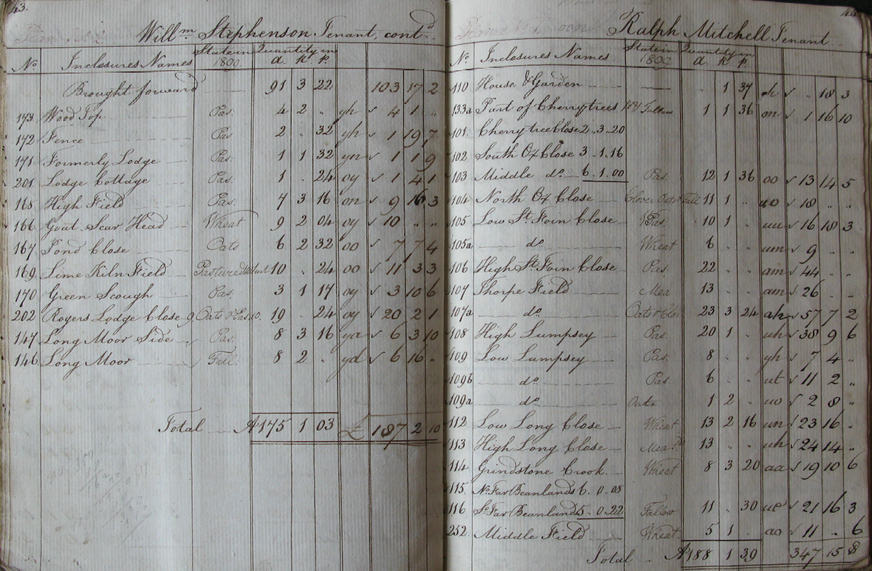 43.
Willm Stephenson Tenant, contd
No. Inclosures Names State in 1800 Quantity in a R P
Brought forward 91 3 22 103 17 2
173 Wood Top Pas. 4 2 . yh 4 1 ..
172 Fence Pas. 2 . 32 yh 1 19 7
171 Formerly Lodge Pas. 1 1 32 yn 1 1 9
201 Lodge Cottage Pas. 1 . 24 oy 1 4 1
165 High Field Pas. 7 3 16 on 9 16 3
166 Goat Scar Head Wheat 9 2 04 oy 10 .. ..
167 Pond Close Oats 6 2 32 oo 7 7 4
169 Lime Kiln Field 10 . 24 oo 11 3 3
170 Green Scough Pas. 3 1 17 oy 3 10 6
202 Rogers Lodge Close 19 . 24 oy 20 2 1
147 Long Moor Side Pas. 8 3 16 ya 6 3 10
146 Long Moor Fall. 8 2 . ya 6 16 ..
Total A 175 1 03 £ 187 2 10
Ralph Mitchell Tenant
No. Inclosures Names State in 1800 Quantity in a R P
110 House & Garden . 1 37 18 3
133a Part of Cherrytrees 1 1 36 on 1 16 10
101 Cherry tree Close 2.3.20
102 South Ox Close 3.1.16
103 Middle do 6.1.00 Pas 12 1 36 oo 13 14 5
104 North Ox Close 11 1 . 18 ..
105 Low St. Foin Close Pas. 10 1 . 16 18 3
105a do Wheat 6 . . um 9 ..
106 High St. Foin Close Pas. 22 . . am 44 ..
107 Thorpe Field Mea 13 . . am 26 ..
107a do 23 3 24 ah 57 7 2
108 High Lumpsey Pas. 20 1 . uh 38 9 6
109 Low Lumpsey Pas. 8 . . yh 7 4 ..
109b do Pas 6 . . ut 11 2 ..
109a do Oats 1 2 . uo 2 8 ..
112 Low Long Close Wheat 13 2 16 un 23 16 ..
113 High Long Close Mea 13 . . uh 24 14 ..
114 Grindstone Crook Wheat 8 3 20 aa 19 10 6
115 No. Far Beanlands 6.0.08
116 So. Far Beanlands 5.0.22 Fallow 11 . 30 ue 21 16 3
252 Middle Field Wheat 5 1 . ao 11 . 6
Total A 188 1 30 347 15 8